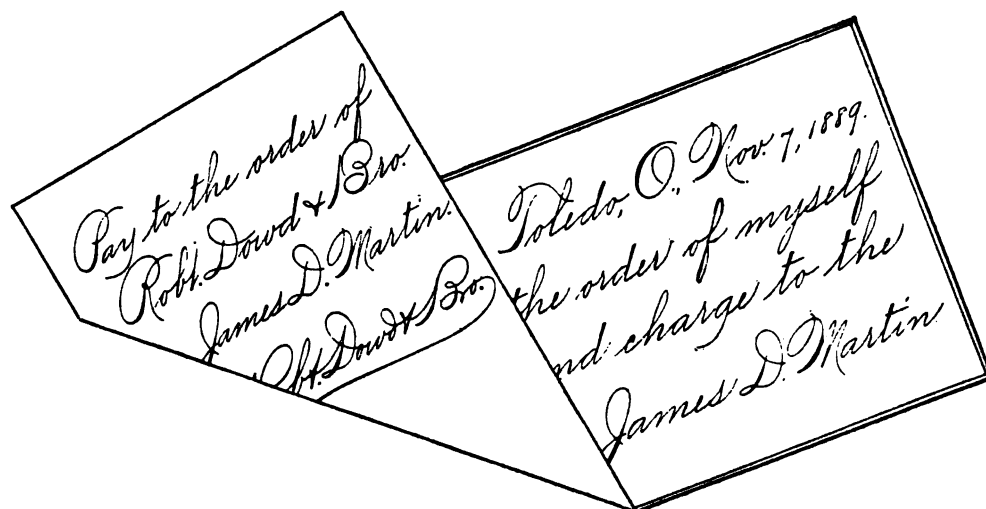 Pay to the order of
Robt. Dowd & Bro.
James D. Martin.
Robt. Dowd & Bro.
Toledo, O., Nov. 7, 1889.
the order of myself
nd charge to the
James D. Martin